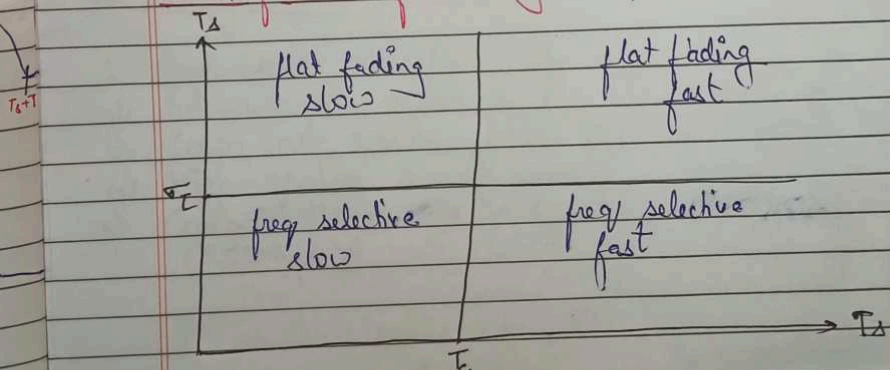 Ts
flat fading
slow
flat fading
fast
Ts+T
freq selective
slow
freq selective
fast
Ts